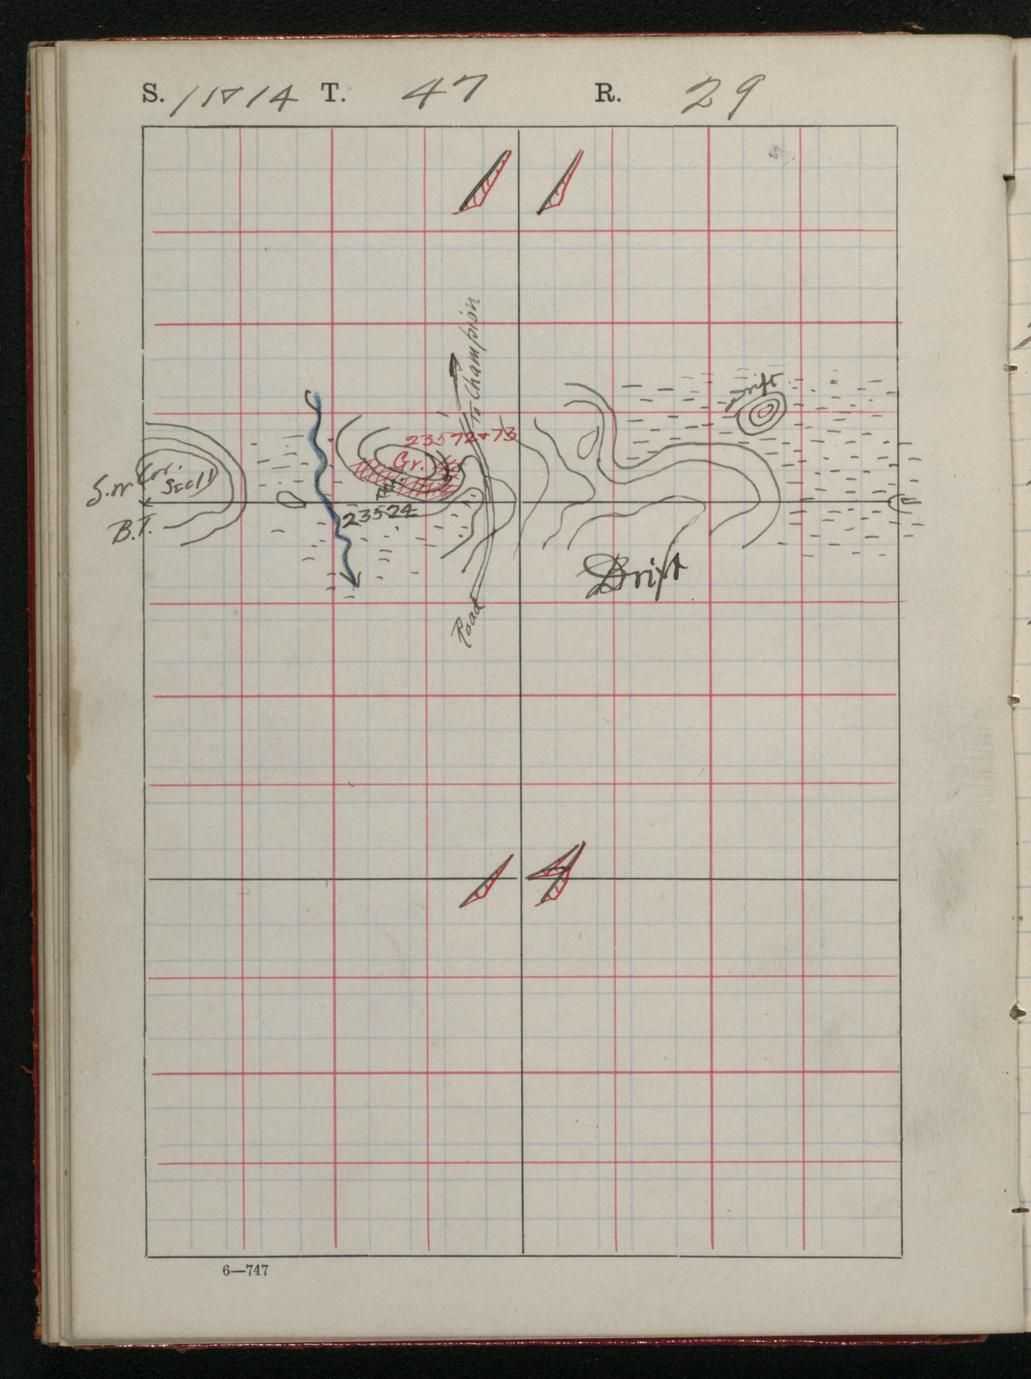 S. 11 & 14 T. 47 R. 29
To Champion
Drift
23572 & 73
Gr.
S.W. Gr.
Sec 11
B.T.
23524
Drift
Road
6—747